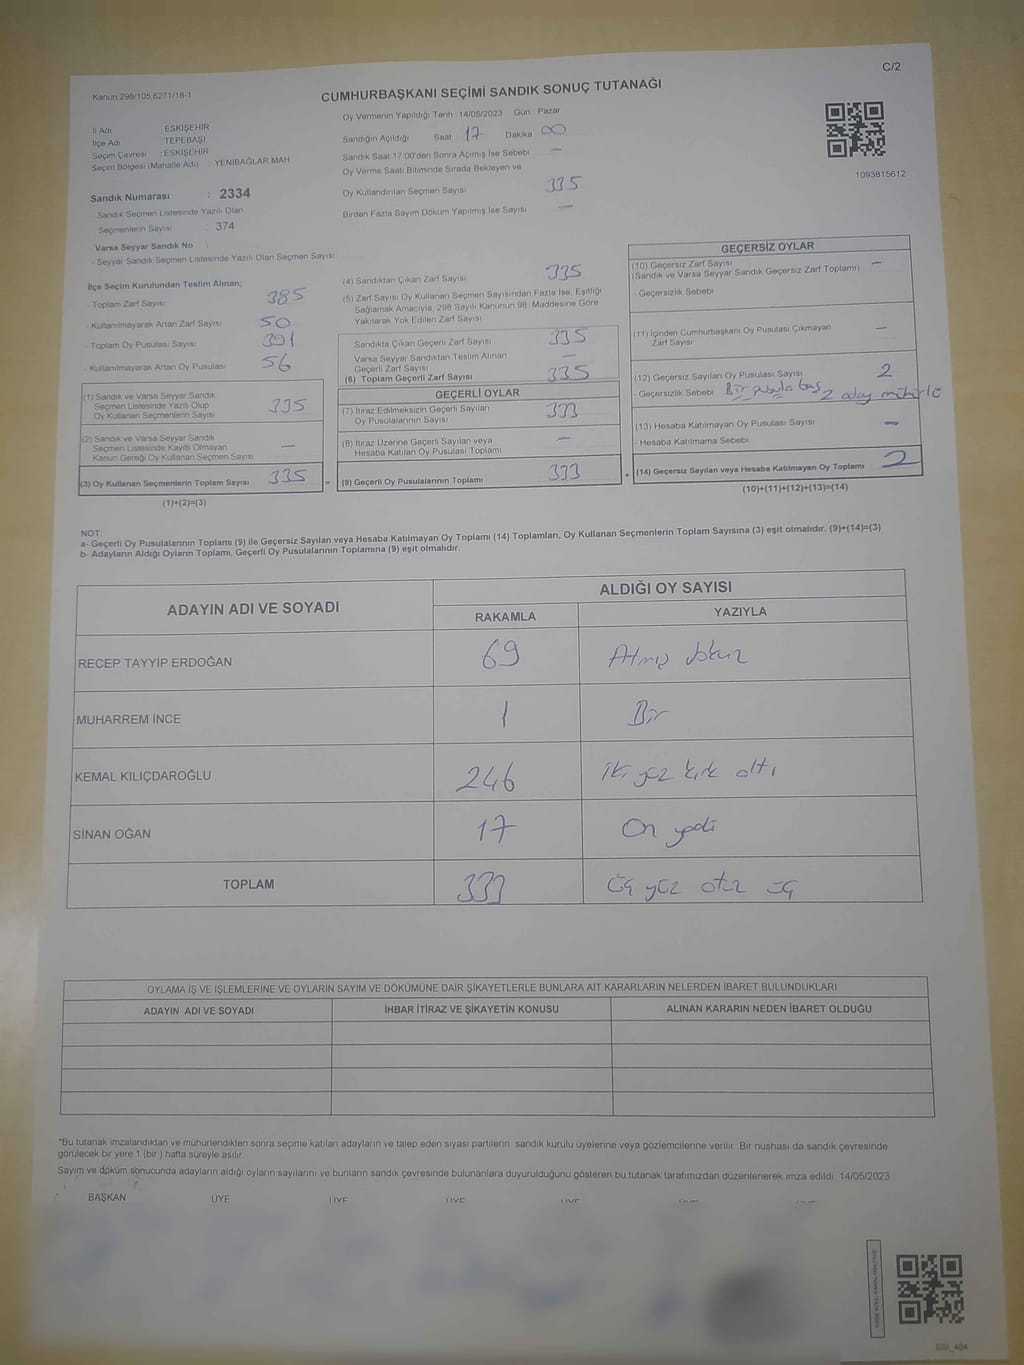 C/2
Kanun:298/105;6271/18-1
CUMHURBAŞKANI SEÇİMİ SANDIK SONUÇ TUTANAĞI
İl Adı : ESKİŞEHİR
İlçe Adı : TEPEBAŞI
Seçim Çevresi : ESKİŞEHİR
Seçim Bölgesi (Mahalle Adı) : YENİBAĞLAR MAH.
Sandık Numarası : 2334
- Sandık Seçmen Listesinde Yazılı Olan
Seçmenlerin Sayısı : 374
Varsa Seyyar Sandık No
- Seyyar Sandık Seçmen Listesinde Yazılı Olan Seçmen Sayısı
Oy Vermenin Yapıldığı Tarih 14/05/2023 Gün Pazar
Sandığın Açıldığı Saat 17 Dakika 00
Sandık Saat 17:00'den Sonra Açılmış İse Sebebi —
Oy Verme Saati Bitiminde Sırada Bekleyen ve
Oy Kullandırılan Seçmen Sayısı 335
Birden Fazla Sayım Döküm Yapılmış İse Sayısı —
1093815612
İlçe Seçim Kurulundan Teslim Alınan;
- Toplam Zarf Sayısı 385
- Kullanılmayarak Artan Zarf Sayısı 50
- Toplam Oy Pusulası Sayısı 391
- Kullanılmayarak Artan Oy Pusulası 56
(1) Sandık ve Varsa Seyyar Sandık
Seçmen Listesinde Yazılı Olup
Oy Kullanan Seçmenlerin Sayısı 335
(2) Sandık ve Varsa Seyyar Sandık
Seçmen Listesinde Kayıtlı Olmayan
Kanun Gereği Oy Kullanan Seçmen Sayısı —
(3) Oy Kullanan Seçmenlerin Toplam Sayısı 335
(1)+(2)=(3)
(4) Sandıktan Çıkan Zarf Sayısı 335
(5) Zarf Sayısı Oy Kullanan Seçmen Sayısından Fazla İse, Eşitliği
Sağlamak Amacıyla, 298 Sayılı Kanunun 98. Maddesine Göre
Yakılarak Yok Edilen Zarf Sayısı
Sandıkta Çıkan Geçerli Zarf Sayısı 335
Varsa Seyyar Sandıktan Teslim Alınan
Geçerli Zarf Sayısı —
(6) Toplam Geçerli Zarf Sayısı 335
GEÇERLİ OYLAR
(7) İtiraz Edilmeksizin Geçerli Sayılan
Oy Pusulasının Sayısı 333
(8) İtiraz Üzerine Geçerli Sayılan veya
Hesaba Katılan Oy Pusulası Toplamı —
= (9) Geçerli Oy Pusulalarının Toplamı 333
GEÇERSİZ OYLAR
(10) Geçersiz Zarf Sayısı —
(Sandık ve Varsa Seyyar Sandık Geçersiz Zarf Toplamı)
- Geçersizlik Sebebi
(11) İçinden Cumhurbaşkanı Oy Pusulası Çıkmayan
Zarf Sayısı —
(12) Geçersiz Sayılan Oy Pusulası Sayısı 2
- Geçersizlik Sebebi Bir pusula boş 2 aday mühürlü
(13) Hesaba Katılmayan Oy Pusulası Sayısı —
- Hesaba Katılmama Sebebi
+ (14) Geçersiz Sayılan veya Hesaba Katılmayan Oy Toplamı 2
(10)+(11)+(12)+(13)=(14)
NOT:
a- Geçerli Oy Pusulalarının Toplamı (9) ile Geçersiz Sayılan veya Hesaba Katılmayan Oy Toplamı (14) Toplamları, Oy Kullanan Seçmenlerin Toplam Sayısına (3) eşit olmalıdır. (9)+(14)=(3)
b- Adayların Aldığı Oyların Toplamı, Geçerli Oy Pusulalarının Toplamına (9) eşit olmalıdır.
ADAYIN ADI VE SOYADI
ALDIĞI OY SAYISI
RAKAMLA YAZIYLA
RECEP TAYYİP ERDOĞAN 69 Atmış dokuz
MUHARREM İNCE 1 Bir
KEMAL KILIÇDAROĞLU 246 İki yüz kırk altı
SİNAN OĞAN 17 On yedi
TOPLAM 333 Üç yüz otuz üç
OYLAMA İŞ VE İŞLEMLERİNE VE OYLARIN SAYIM VE DÖKÜMÜNE DAİR ŞİKAYETLERLE BUNLARA AİT KARARLARIN NELERDEN İBARET BULUNDUKLARI
ADAYIN ADI VE SOYADI İHBAR İTİRAZ VE ŞİKAYETİN KONUSU ALINAN KARARIN NEDEN İBARET OLDUĞU
*Bu tutanak imzalandıktan ve mühürlendikten sonra seçime katılan adayların ve talep eden siyasi partilerin sandık kurulu üyelerine veya gözlemcilerine verilir. Bir nüshası da sandık çevresinde
görülecek bir yere 1 (bir ) hafta süreyle asılır.
Sayım ve döküm sonucunda adayların aldığı oyların sayılarını ve bunların sandık çevresinde bulunanlara duyurulduğunu gösteren bu tutanak tarafımızdan düzenlenerek imza edildi. 14/05/2023
BAŞKAN ÜYE ÜYE ÜYE ÜYE ÜYE ÜYE